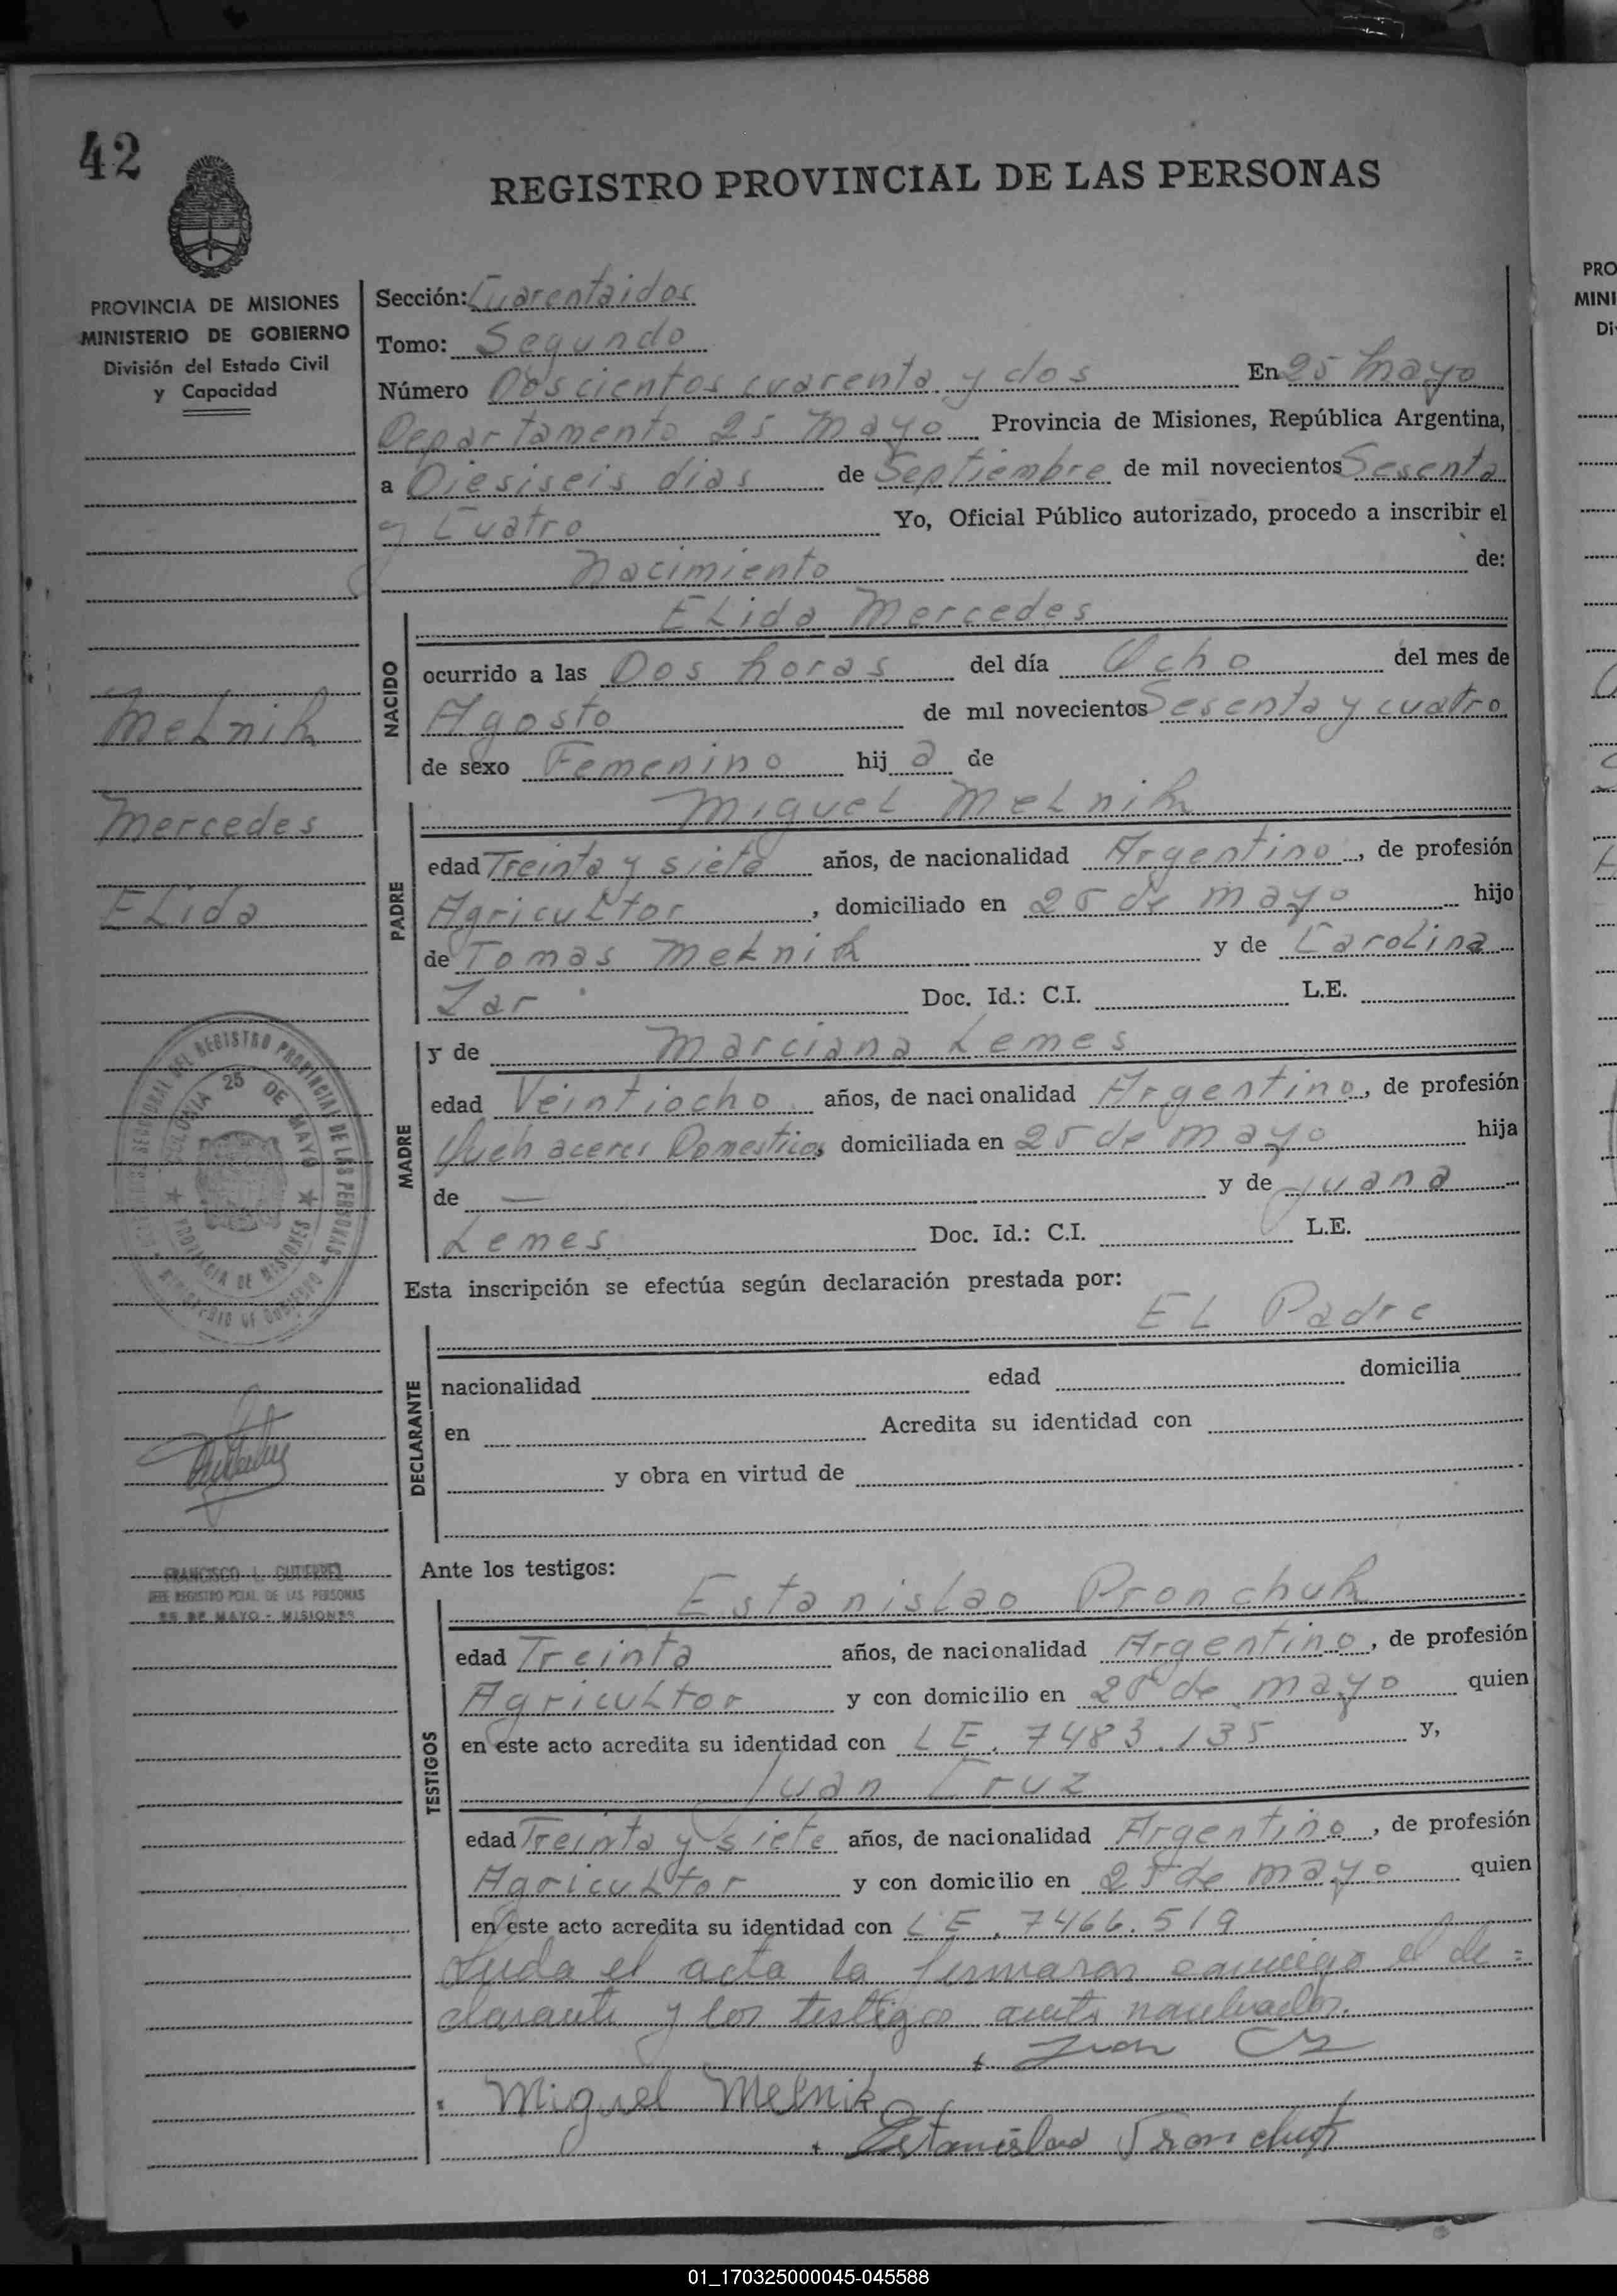 42
REGISTRO PROVINCIAL DE LAS PERSONAS
PROVINCIA DE MISIONES
MINISTERIO DE GOBIERNO
División del Estado Civil
y Capacidad
Sección: Cuarentaidos
Tomo: Segundo
Número Doscientos cuarenta y dos En 25 Mayo
Departamento 25 Mayo Provincia de Misiones, República Argentina,
a Diesiseis dias de Septiembre de mil novecientos Sesenta
y Cuatro Yo, Oficial Público autorizado, procedo a inscribir el
Nacimiento de:
ELida Mercedes
NACIDO
ocurrido a las Dos horas del día Ocho del mes de
Agosto de mil novecientos Sesenta y cuatro
de sexo Femenino hij a de
MeLnik
Mercedes
ELida
MigueL MeLnik
PADRE
edad Treinta y siete años, de nacionalidad Argentino, de profesión
AgricuLtor, domiciliado en 25 de mayo hijo
de Tomas MeLnik y de CaroLina
Zar Doc. Id.: C.I. L.E.
MADRE
y de Marciana Lemes
edad Veintiocho años, de nacionalidad Argentina, de profesión
Queh aceres Domesticos domiciliada en 25 de mayo hija
de — y de Juana
Lemes Doc. Id.: C.I. L.E.
SECCIONAL DEL REGISTRO PROVINCIAL DE LAS PERSONAS
COLONIA 25 DE MAYO
PROVINCIA DE MISIONES
MINISTERIO DE GOBIERNO
Esta inscripción se efectúa según declaración prestada por:
EL Padre
DECLARANTE
nacionalidad edad domicilia
en Acredita su identidad con
y obra en virtud de
FRANCISCO L. GUTIERREZ
JEFE REGISTRO PCIAL. DE LAS PERSONAS
25 DE MAYO - MISIONES
Ante los testigos:
EstanisLao Pronchuk
TESTIGOS
edad Treinta años, de nacionalidad Argentino, de profesión
AgricuLtor y con domicilio en 25 de mayo quien
en este acto acredita su identidad con LE. 7483.135 y,
Juan Cruz
edad Treinta y siete años, de nacionalidad Argentino, de profesión
AgricuLtor y con domicilio en 25 de mayo quien
en este acto acredita su identidad con LE. 7466.519
Leida el acta la firmaron conmigo el de=
clarante y los testigos antes nombrados.
Juan Cz
Miguel Melnik
Estanislao Pronchuk
PRO
MINI
Di
01_170325000045-045588